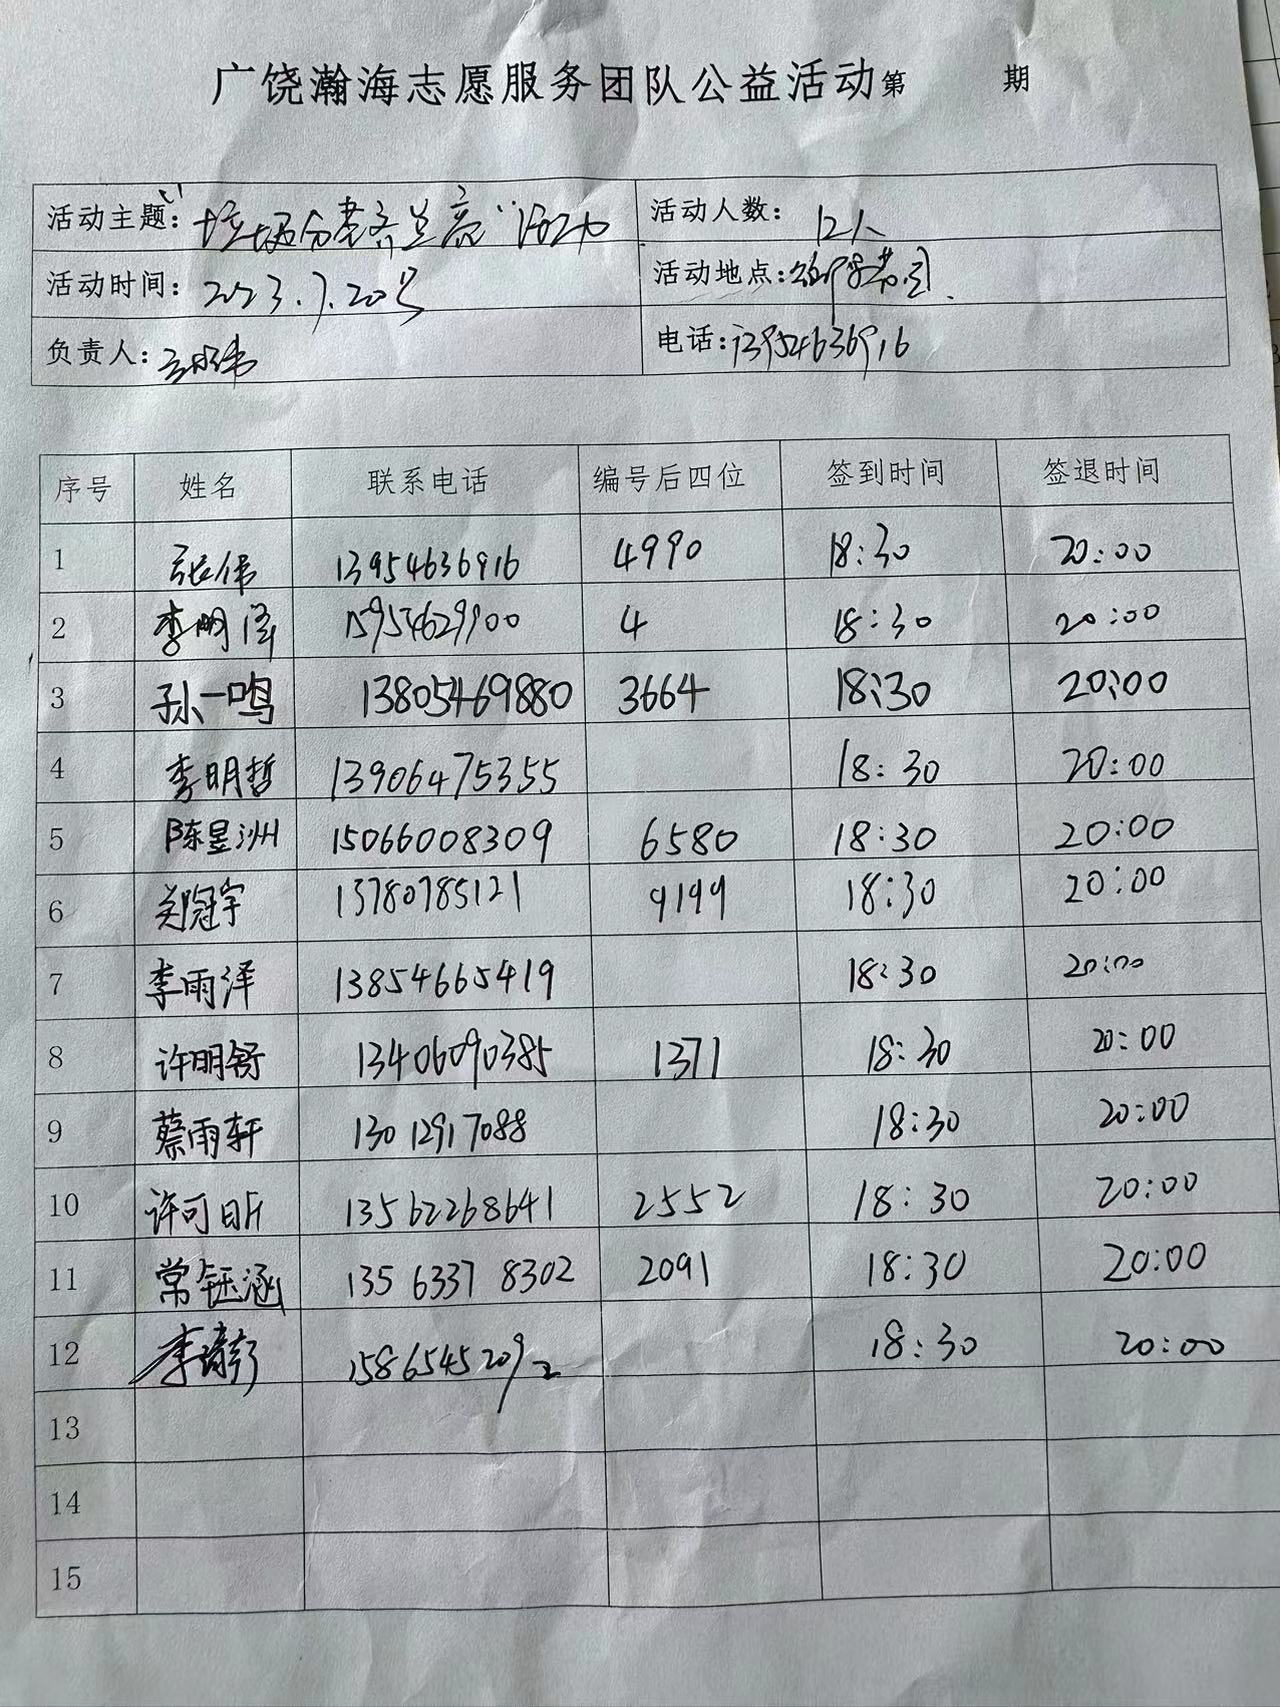 广饶瀚海志愿服务团队公益活动第 期
活动主题：“垃圾分类齐 ”活动 活动人数： 12人
活动时间：2023.7.20号 活动地点：
负责人：张伟 电话：13954636916
序号 姓名 联系电话 编号后四位 签到时间 签退时间
1 张伟 13954636916 4990 18:30 20:00
2 李明泽 15954629900 4 18:30 20:00
3 孙一鸣 13805469880 3664 18:30 20:00
4 李明哲 13906475355 18:30 20:00
5 陈昱洲 15066008309 6580 18:30 20:00
6 郑冠宇 13780785121 9199 18:30 20:00
7 李雨泽 13854665419 18:30 20:00
8 许明舒 13406090385 1371 18:30 20:00
9 蔡雨轩 13012917088 18:30 20:00
10 许可昕 13562268641 2552 18:30 20:00
11 常钰涵 13563378302 2091 18:30 20:00
12 李 15865452092 18:30 20:00
13
14
15